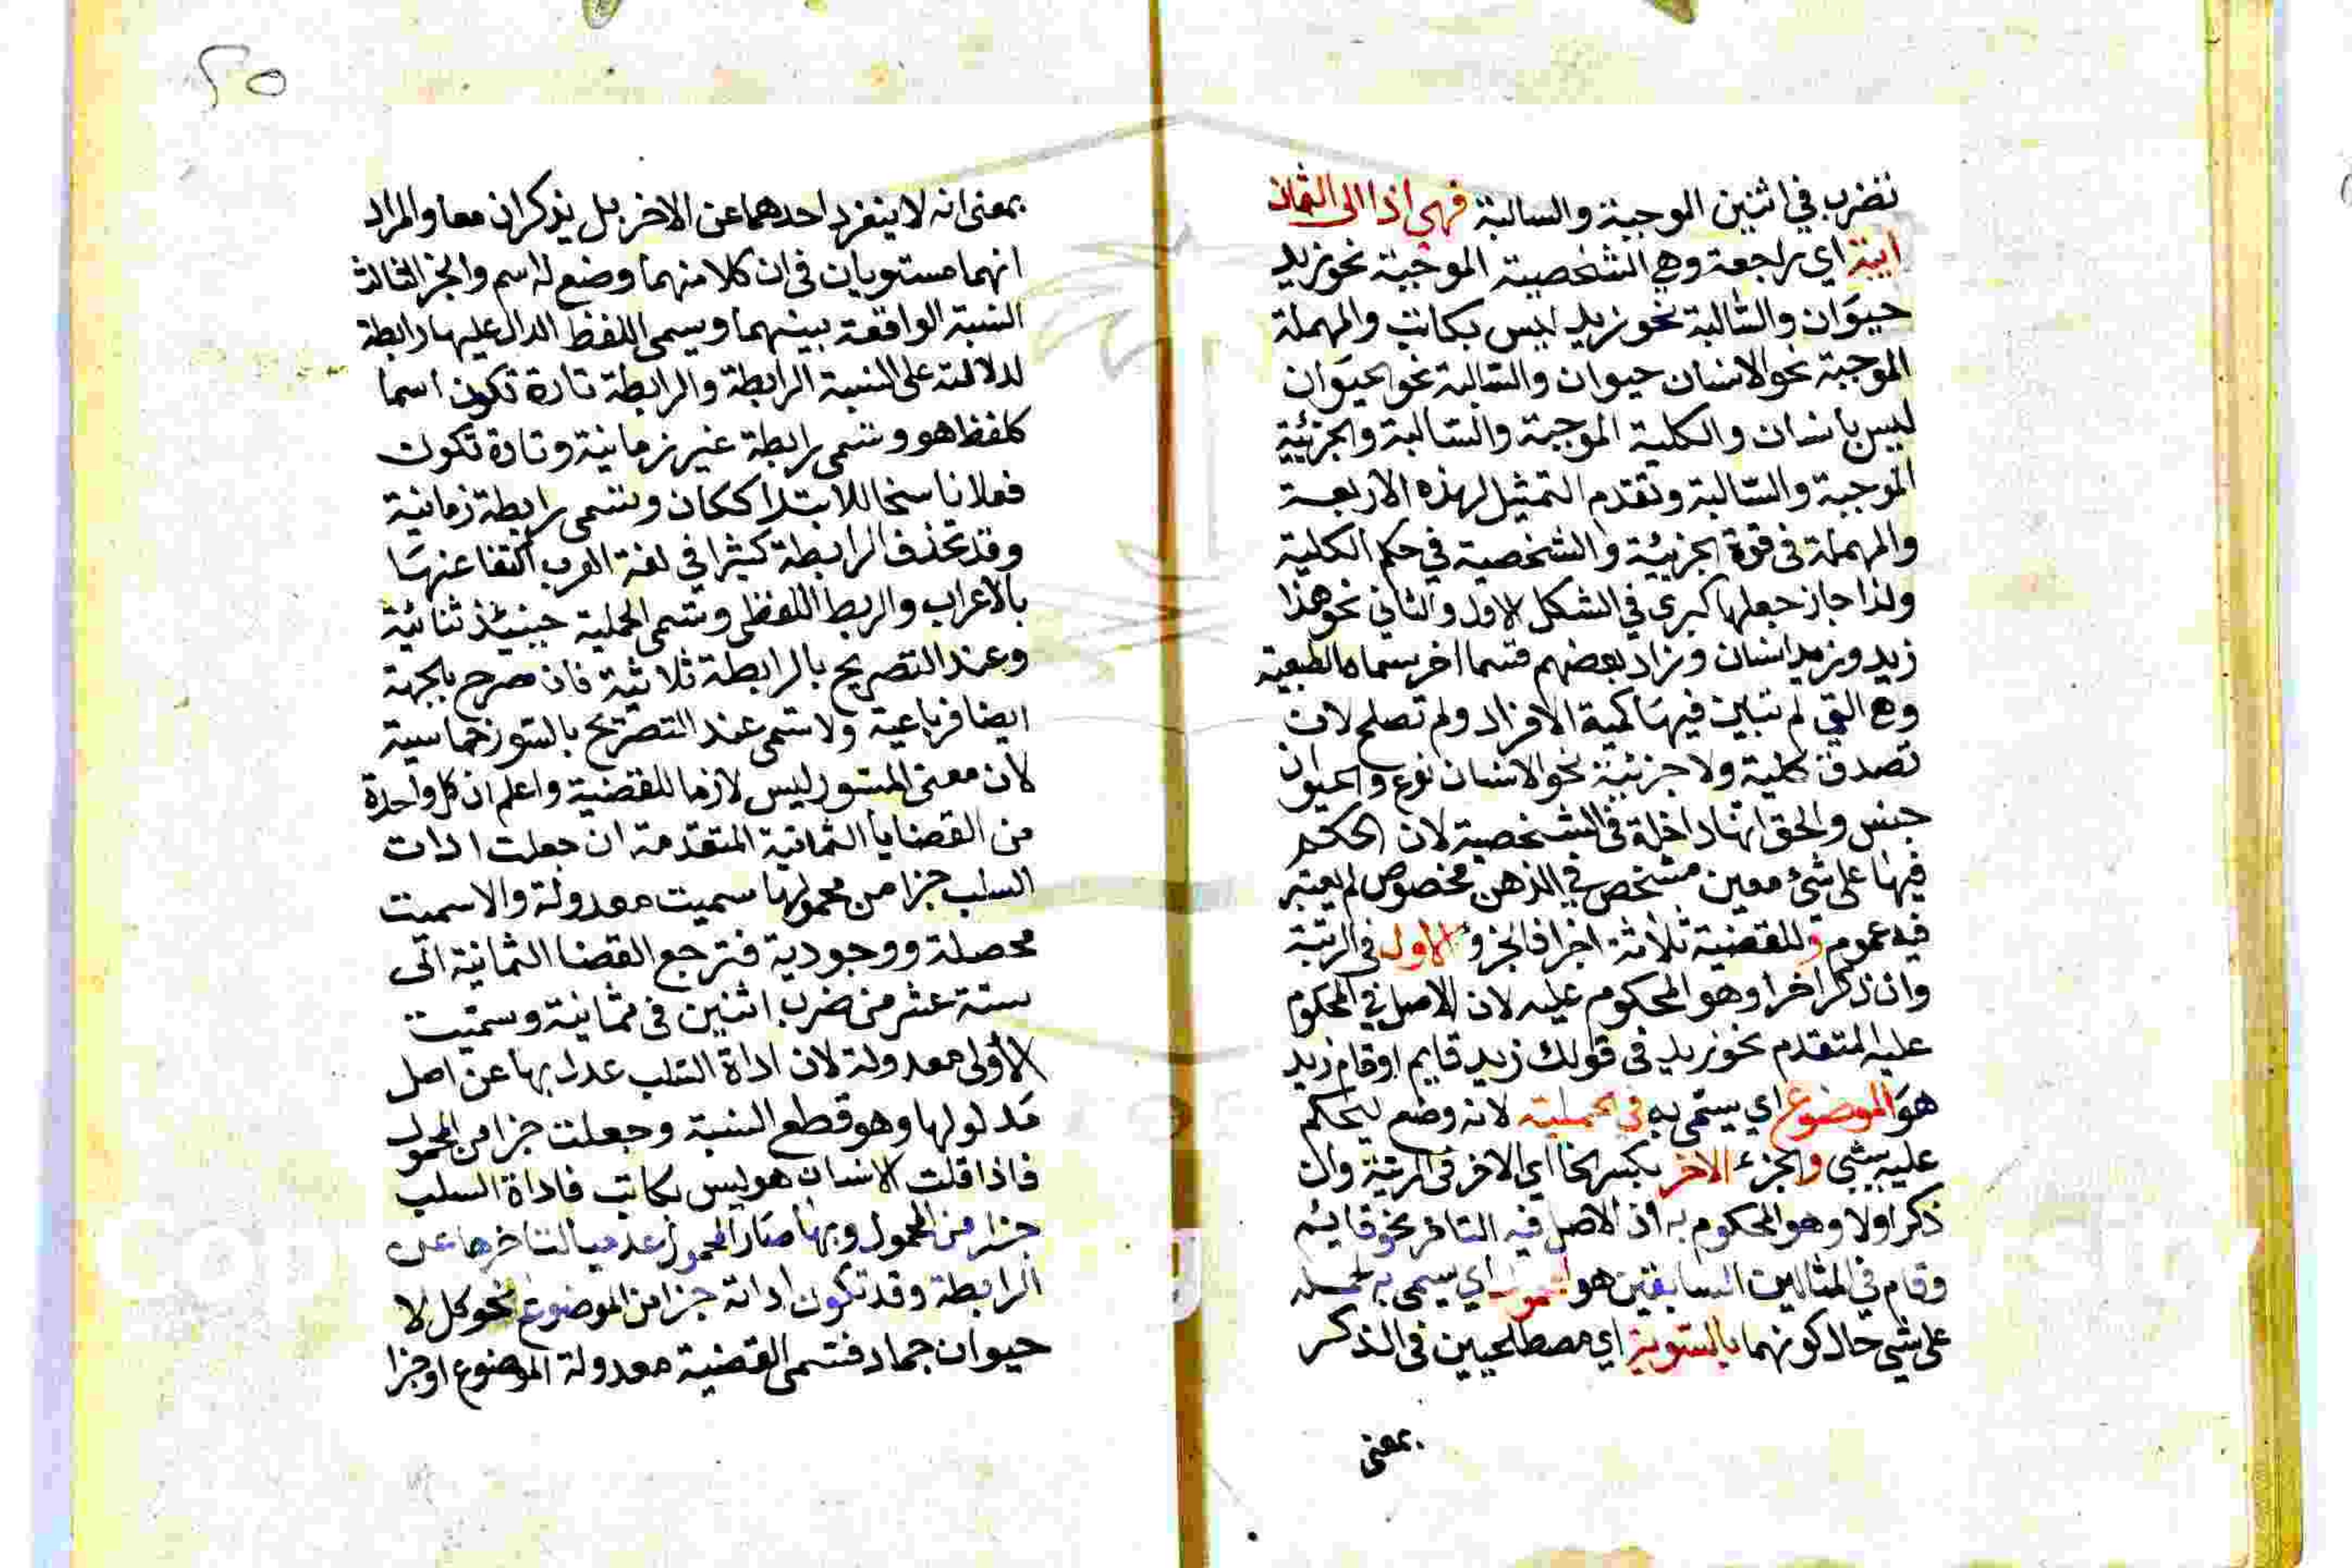 تضرب في اثنين الموجبة والسالبة فهي اذا الى الثمان
ايبة اي راجعة وهي الشخصية الموجبة نحو زيد
حيوان والسالبة نحو زيد ليس بكاتب والمهملة
الموجبة نحو الانسان حيوان والسالبة نحو الحيوان
ليس بانسان والكلية الموجبة والسالبة والجزئية
الموجبة والسالبة وتقدم التمثيل لهذه الاربعة
والمهملة في قوة الجزئية والشخصية في حكم الكلية
ولذا جاز جعلها كبرى في الشكل الاول والثاني نحو هذا
زيد وزيد انسان وزاد بعضهم قسما اخر سماه الطبعية
وهي التي لم تبين فيها كمية الافراد ولم تصلح لان
تصدق كلية ولا جزئية نحو الانسان نوع والحيوان
جنس والحق انها داخلة في الشخصية لان الحكم
فيها على شئ معين مشخص في الذهن مخصوص لم يعتبر
فيه عموم وللقضية ثلاثة اجزا فالجزؤ الاول في الرتبة
وان ذكر اخرا وهو المحكوم عليه لان الاصل في المحكوم
عليه المتقدم نحو زيد في قولك زيد قايم او قام زيد
هو الموضوع اي يسمى به في الحملية لانه وضع ليحكم
عليه بشي والجزء الاخر بكسر الخا اي الاخر في الرتبة وان
ذكر اولا وهو المحكوم به اذ الاصل فيه التاخر نحو قايم
وقام في المثالين السابقين هو المحمول اي يسمى به لحمله
على شي حال كونهما بالسوية اي مصطلحيين في الذكر
بمعنى
٢٥
بمعنى انه لا ينفرد احدهما عن الاخر بل يذكران معا والمراد
انهما مستويان في ان كلا منهما وضع له اسم والجز الثالث
النسبة الواقعة بينهما ويسمى اللفظ الدال عليها رابطة
لدلالته على النسبة الرابطة والرابطة تارة تكون اسما
كلفظ هو وتسمى رابطة غير زمانية وتارة تكون
فعلا ناسخا للابتدا ككان وتسمى رابطة زمانية
وقد تحذف الرابطة كثيرا في لغة العرب اكتفا عنها
بالاعراب والربط اللفظي وتسمى الحملية حينئذ ثنائية
وعند التصريح بالرابطة ثلاثية فان صرح بالجهة
ايضا فرباعية ولا تسمى عند التصريح بالسور خماسية
لان معنى السور ليس لازما للقضية واعلم ان كل واحدة
من القضايا الثمانية المتقدمة ان جعلت ادات
السلب جزا من محمولها سميت معدولة والا سميت
محصلة ووجودية فترجع القضا الثمانية الى
ستة عشر من ضرب اثنين في ثمانية وسميت
الاولى معدولة لان اداة السلب عدل بها عن اصل
مدلولها وهو قطع النسبة وجعلت جزا من المحمول
فاذا قلت الانسان هو ليس بكاتب فاداة السلب
جزا من المحمول وبها صار المحمول عدميا لتاخرها عن
الرابطة وقد تكون اداته جزا من الموضوع نحو كل لا
حيوان جماد فتسمى القضية معدولة الموضوع او جزا